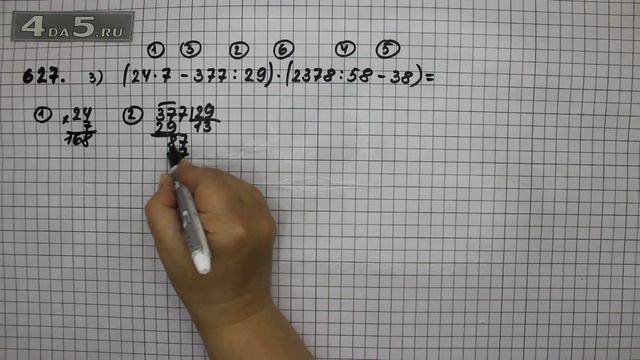 4DA5.RU
① ③ ② ⑥ ④ ⑤
627. 3) (24·7 - 377 : 29) · (2378 : 58 - 38) =
① × 24 ② 377 | 29
7 29 13
168 87